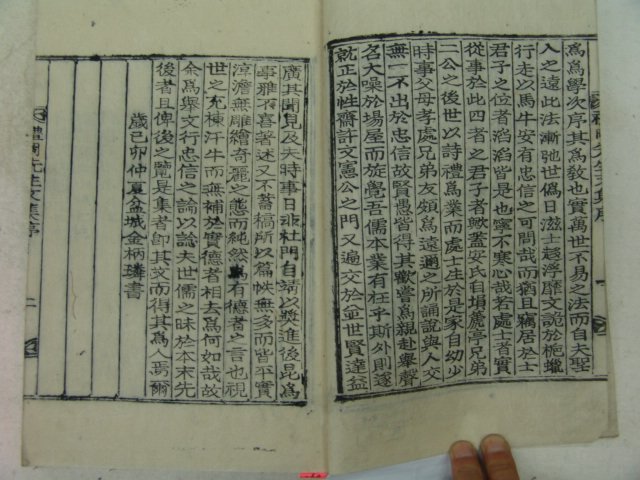 爲爲學次序其爲敎也實萬世不易之法而自夫聖
人之遠此法漸弛世僞日滋士趍浮靡文詔於梔蠟
行走以馬牛安有忠信之可間哉而猶且竊居於士
君子之位者滔滔皆是也寧不寒心哉若處士者實
從事於此四者之君子者歟蓋安氏自塤篪亭兄弟
二公之後世以詩禮爲業而處士生於是家自幼少
時事父母孝處兄弟友頗爲遠邇之所誦說與人交
無一不出於忠信故賢愚皆得其歡嘗爲親赴擧聲
名大噪於場屋而旋學吾儒本業有在乎斯外則遂
就正於性齋許文憲公之門又遍交於並世賢達益
廣其聞見及夫時事日非杜門自靖以奬進後昆爲
事雅不喜著述又不蓄稿所以篇帙無多而皆平實
淳澹無雕繪奇麗之態而純然爲有德者之言也視
世之充棟汗牛而無補於實德者相去爲何如哉故
余爲擧文行忠信之論以諗夫世儒之昧於本末先
後者且俾後之覽是集者卽其文而得其爲人焉爾
歲己卯仲夏盆城金柄璘書
先生文集序
二